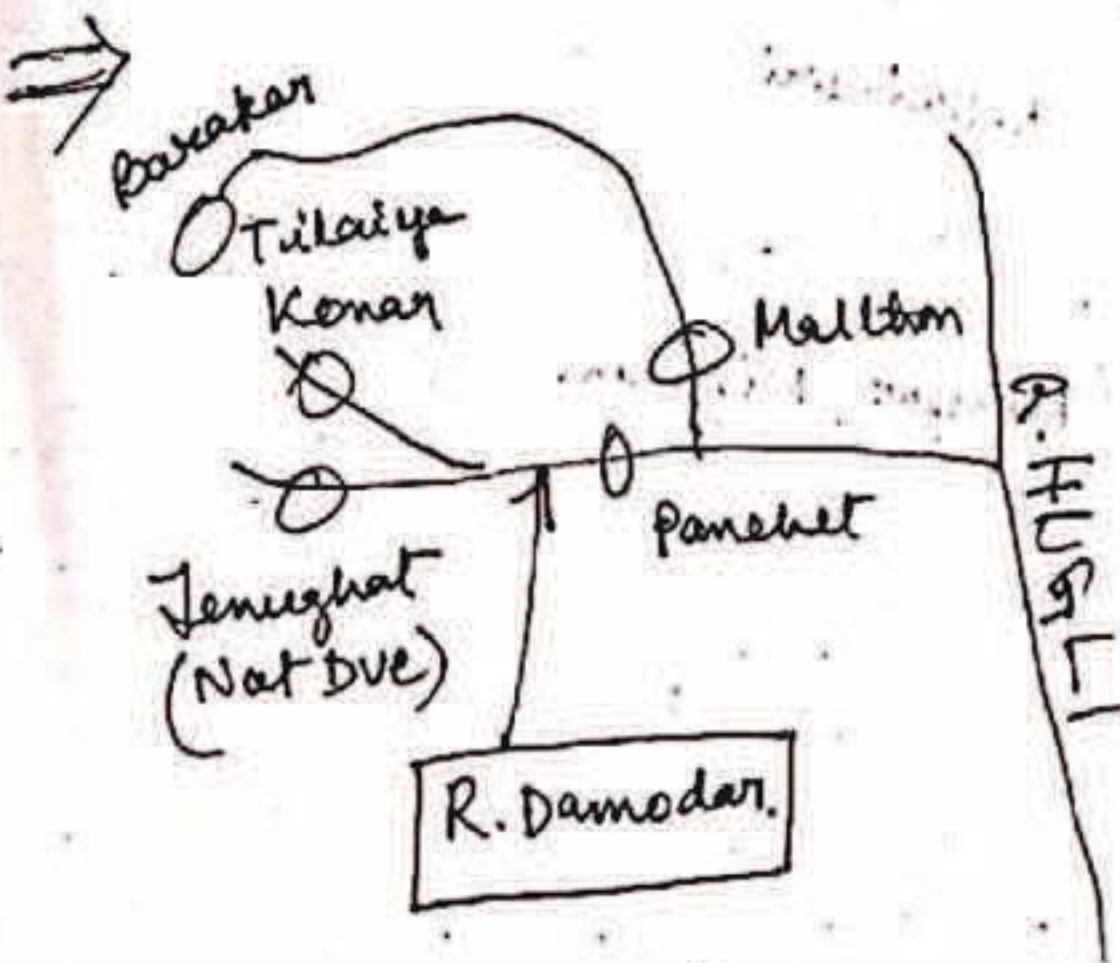 Barakar
Tilaiya
Konar
Maithon
R. HUGLI
Panchet
Tenughat
(Not DVC)
R. Damodar.